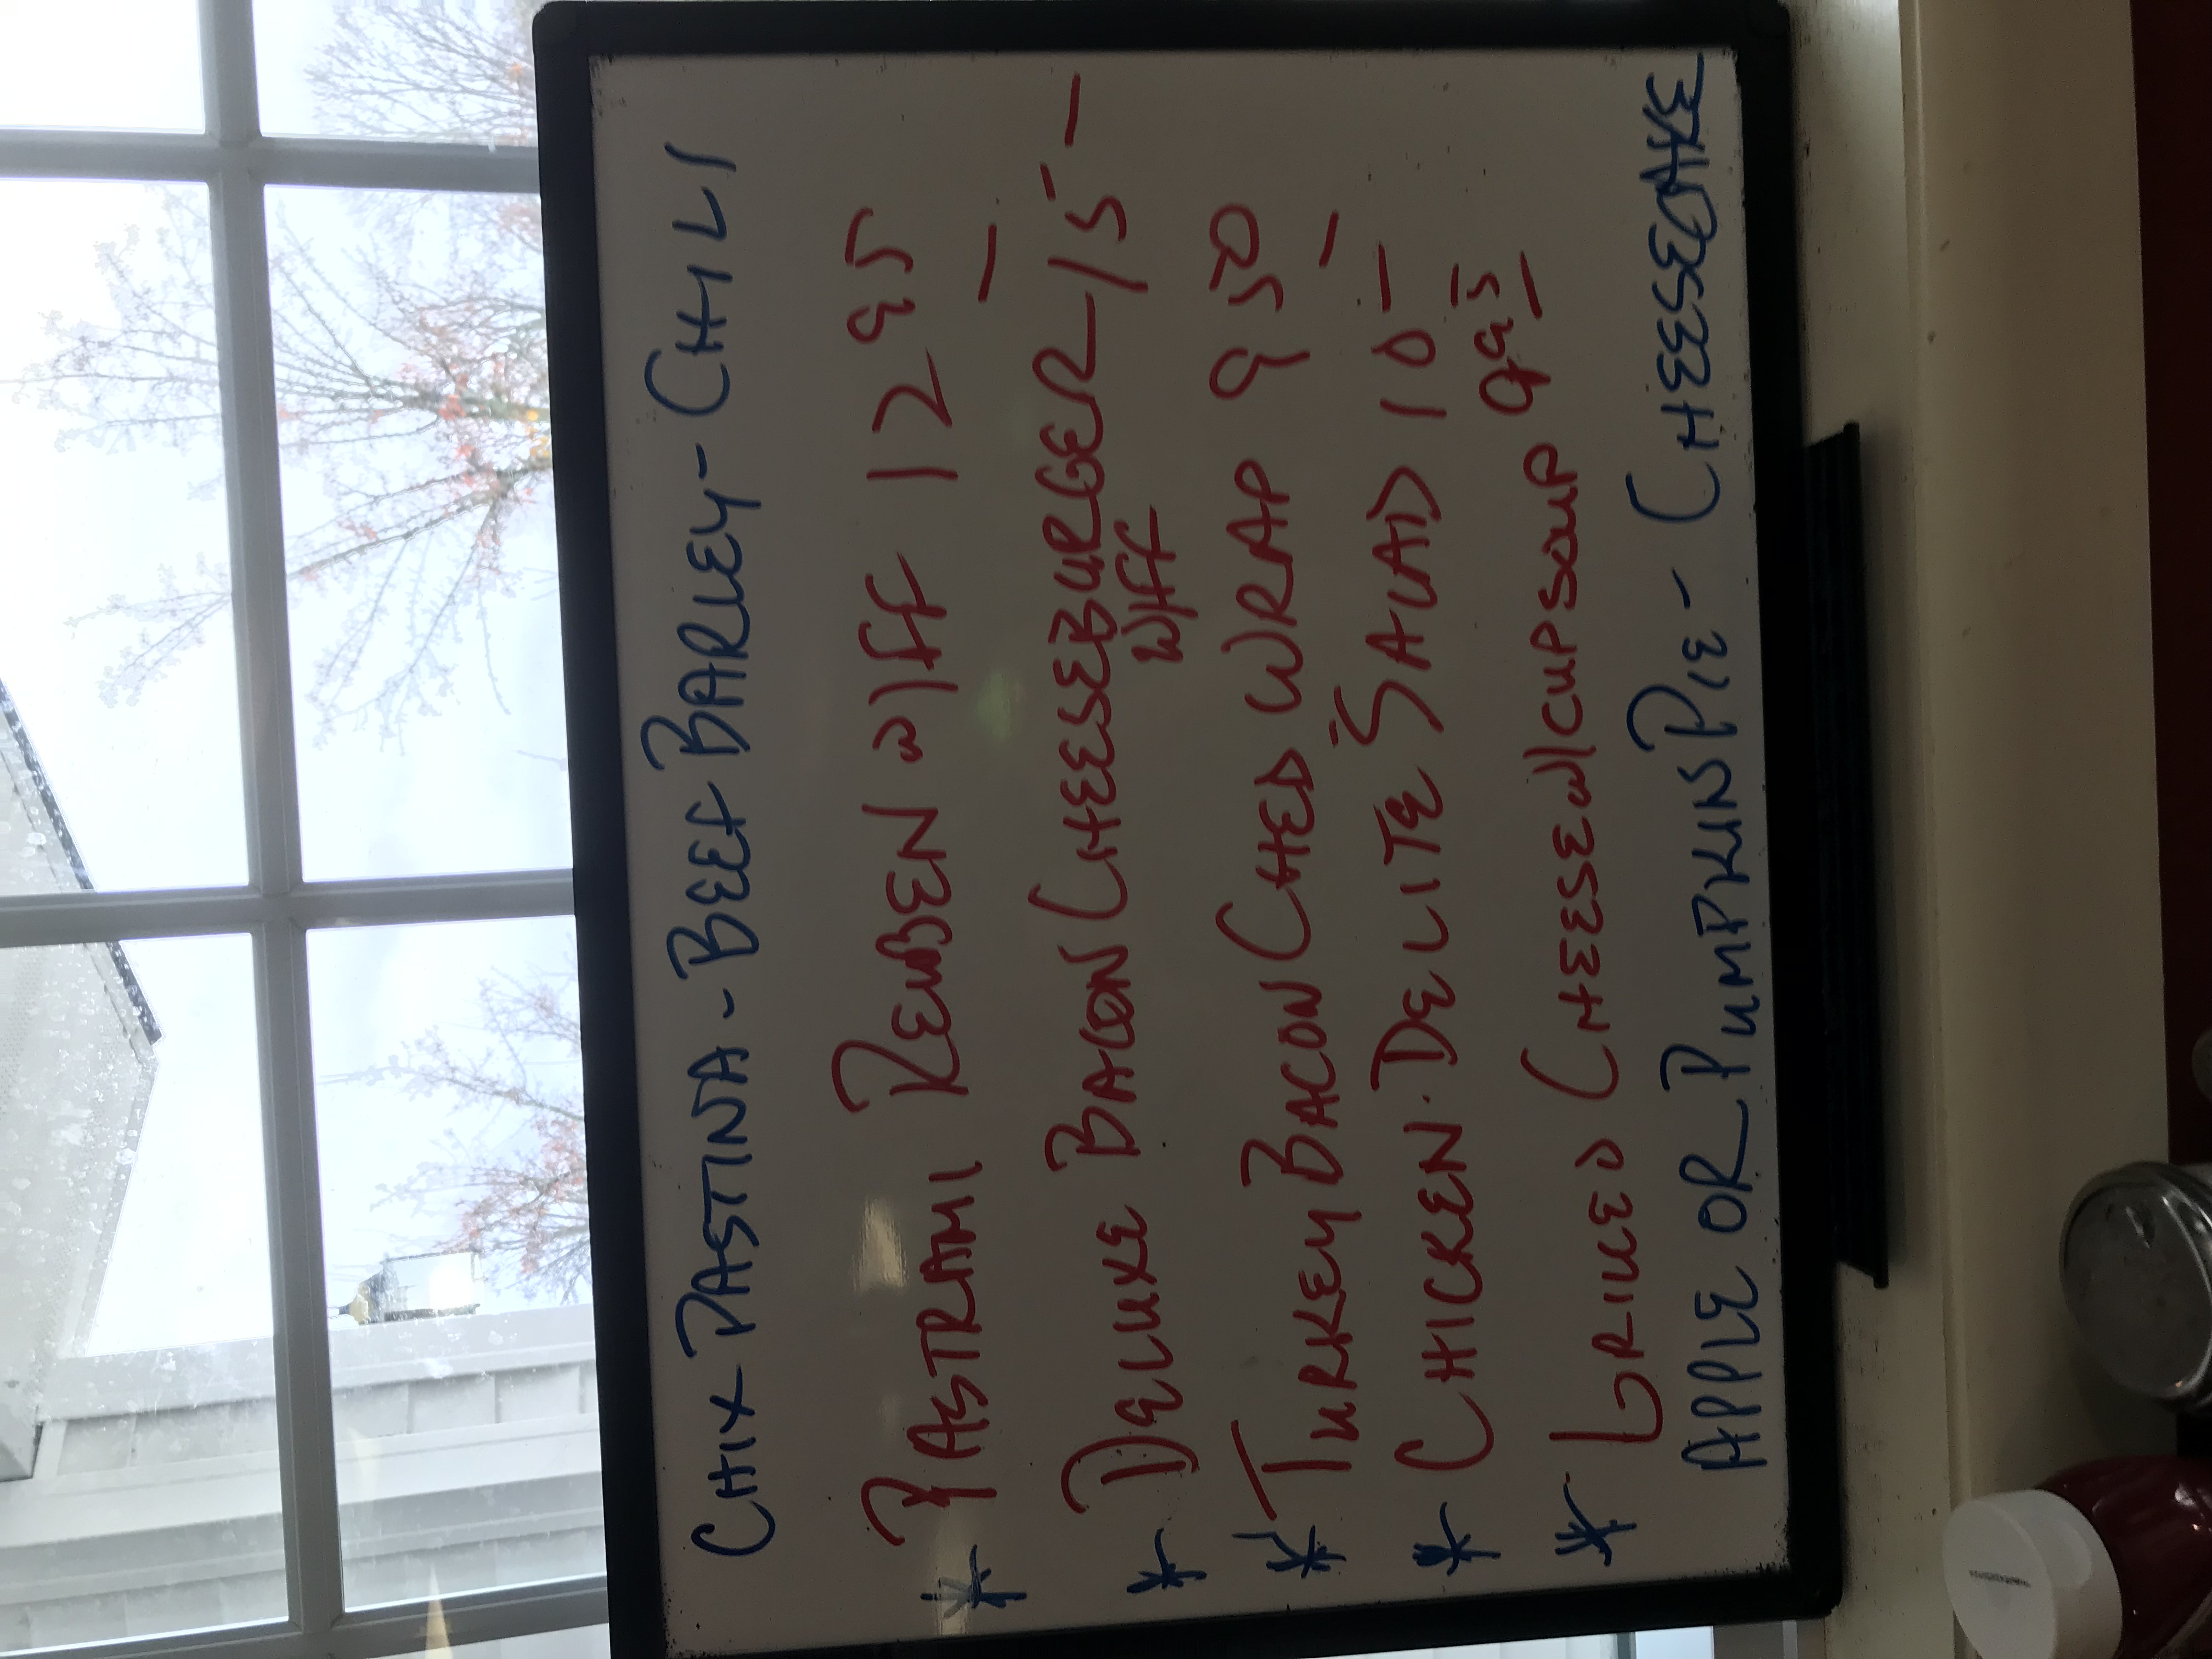 CHIX PASTINA - BEEF BARLEY - CHILI
* PASTRAMI REUBEN W/FF 12 95
* DELUXE BACON CHEESEBURGER 15 -
W/FF
* TURKEY BACON CHED WRAP 9 50
* CHICKEN DELITE SALAD 10 -
* GRILLED CHEESE W/CUP SOUP 9 95
APPLE OR PUMPKIN PIE - CHEESECAKE